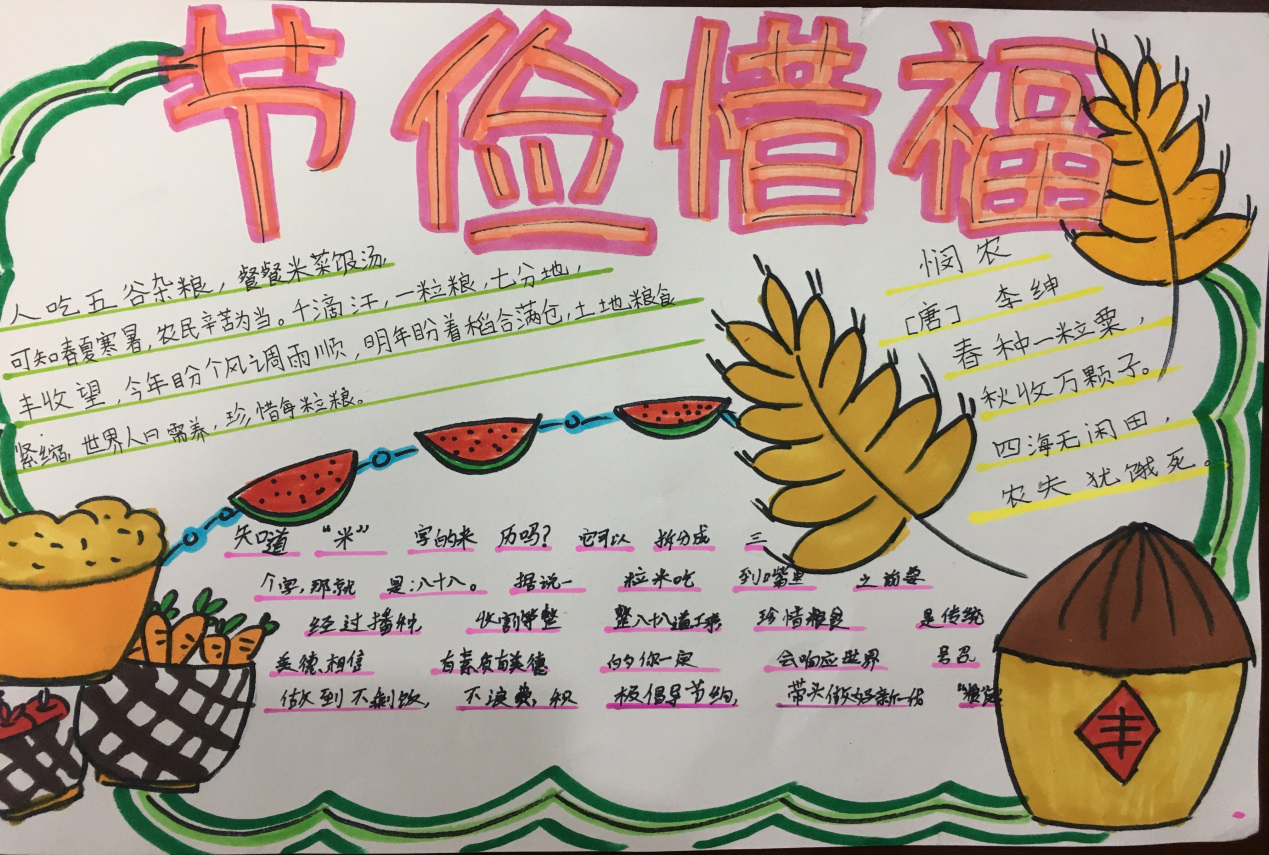 节俭惜福
人吃五谷杂粮，餐餐米菜饭汤，
可知春夏寒暑，农民辛苦为当。千滴汗，一粒粮，七分地，
丰收望，今年盼个风调雨顺，明年盼着稻谷满仓，土地粮食
紧缩，世界人口需养，珍惜每粒粮。
悯农
[唐] 李绅
春种一粒粟，
秋收万颗子。
四海无闲田，
农夫犹饿死。
知道 “米” 字的来 历吗? 它可以 拆分成 三
个字，那就 是：八十八。 据说一 粒米吃 到嘴里 之前要
经过播种 收割等整 整八十八道工序 珍惜粮食 是传统
美德，相信 有素质有美德 的你一定 会响应世界 号召
做到不剩饭， 不浪费，积 极倡导节约， 带头做好新一代
丰